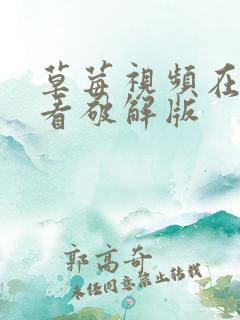 草莓視頻在
看破解版
郭高奇
未经同意禁止转载